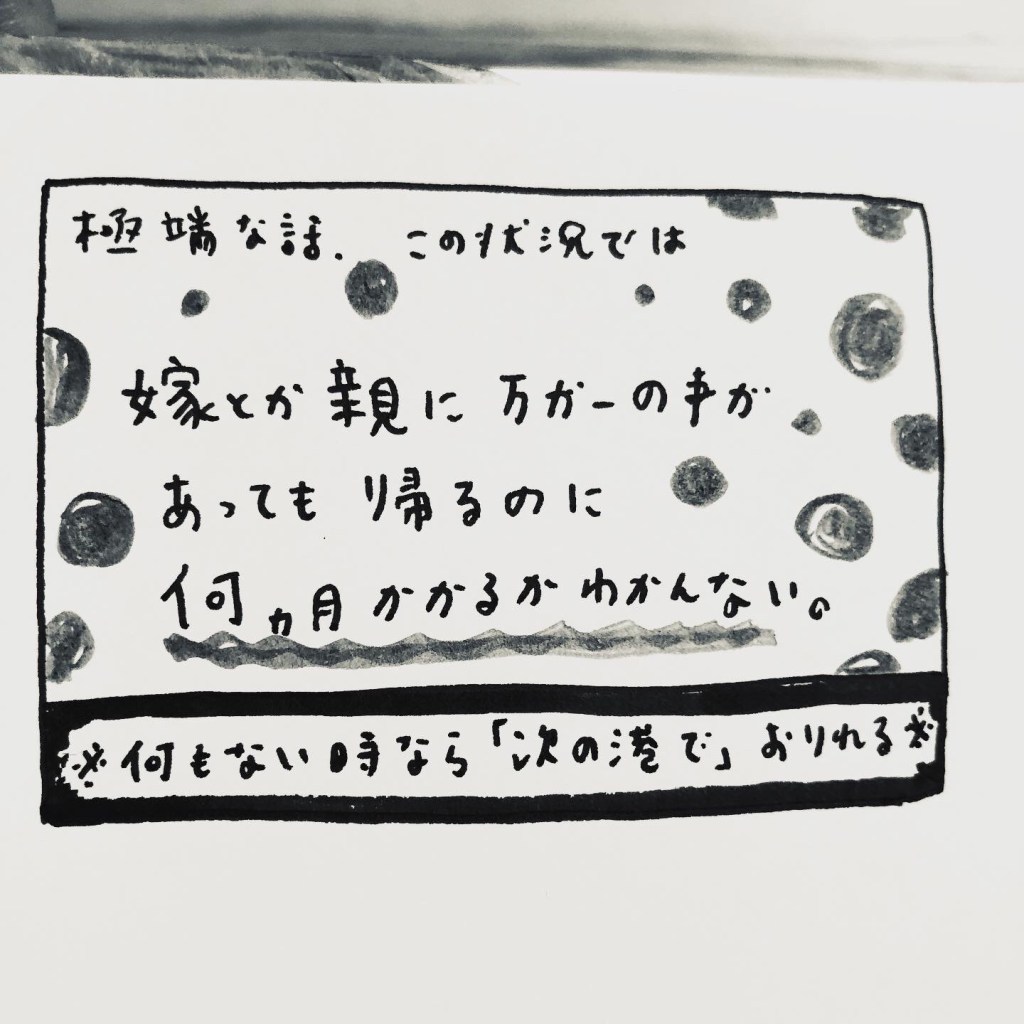 極端な話. この状況では
嫁とか親に万が一の事が
あっても帰るのに
何ヵ月かかるかわかんない。
※何もない時なら「次の港で」おりれる※